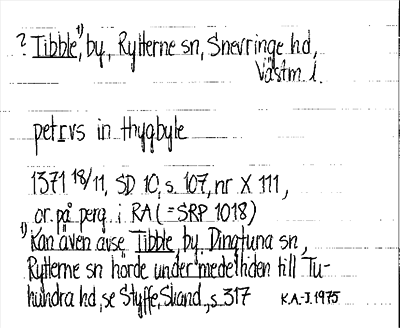 ? Tibble¹⁾, by, Rytterne sn, Snevringe hd,
Västm. l.
petrvs in thygbyle
1371 18/11, SD 10, s. 107, nr X 111,
or. på perg. i RA (= SRP 1018)
¹⁾ Kan även avse Tibble, by, Dingtuna sn,
Rytterne sn hörde under medeltiden till Tu-
hundra hd, se Styffe, Skand., s. 317 K.A.-J. 1975